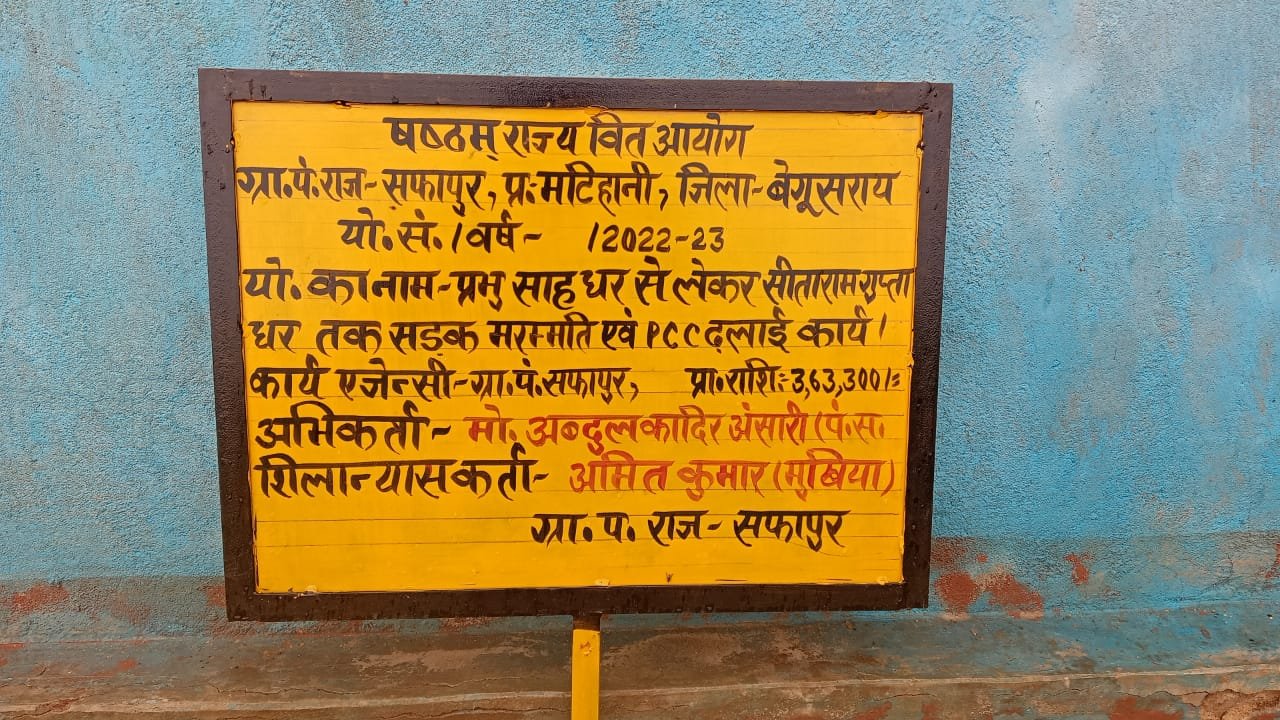 षष्ठम् राज्य वित आयोग
ग्रा.पं.राज-स़फापुर, प्र:मटिहानी, जिला-बेगूसराय
यो.सं./वर्ष- /2022-23
यो.का नाम-प्रभु साह घर से लेकर सीताराम गुप्ता
घर तक सड़क मरम्मति एवं PCC ढ़लाई कार्य।
कार्य एजेन्सी-ग्रा.पं.सफापुर, प्रा.राशि:-3,63,300/=
अभिकर्ता- मो. अब्दुलकादिर अंसारी (पं.स.
शिलान्यासकर्ता- अमित कुमार (मुखिया)
ग्रा.प. राज-सफापुर